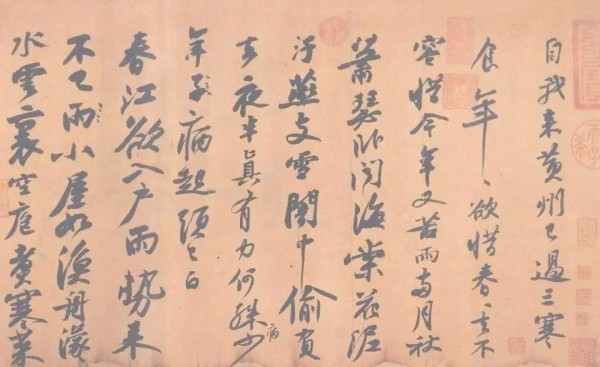 自我来黄州已過三寒
食年〻欲惜春〻去不
容惜今年又苦雨兩月秋
蕭瑟卧聞海棠花泥
汙燕支雪闇中偷負
去夜半真有力何殊病少
年子病起須已白
春江欲入户雨勢来
不已雨小屋如漁舟濛
水雲裏空庖煮寒菜